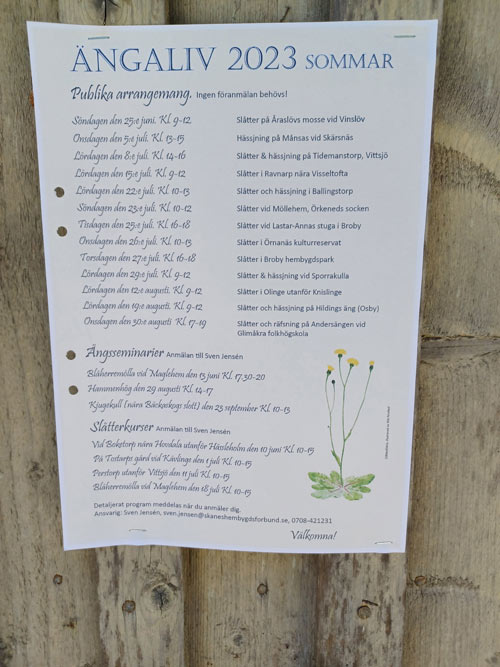 ÄNGALIV 2023 SOMMAR
Publika arrangemang. Ingen föranmälan behövs!
Söndagen den 25:e juni. Kl. 9-12 Slåtter på Åraslövs mosse vid Vinslöv
Onsdagen den 5:e juli. Kl. 13-15 Hässjning på Månsas vid Skärsnäs
Lördagen den 8:e juli. Kl. 14-16 Slåtter & hässjning på Tidemanstorp, Vittsjö
Lördagen den 15:e juli. Kl. 9-12 Slåtter i Ravnarp nära Visseltofta
Lördagen den 22:e juli. Kl. 10-13 Slåtter och hässjning i Ballingstorp
Söndagen den 23:e juli. Kl. 10-12 Slåtter vid Möllehem, Örkeneds socken
Tisdagen den 25:e juli. Kl. 16-18 Slåtter vid Lastar-Annas stuga i Broby
Onsdagen den 26:e juli. Kl. 10-13 Slåtter i Örnanäs kulturreservat
Torsdagen den 27:e juli. Kl. 16-18 Slåtter i Broby hembygdspark
Lördagen den 29:e juli. Kl. 9-12 Slåtter & hässjning vid Sporrakulla
Lördagen den 12:e augusti. Kl. 9-12 Slåtter i Olinge utanför Knislinge
Lördagen den 19:e augusti. Kl. 9-12 Slåtter och hässjning på Hildings äng (Osby)
Onsdagen den 30:e augusti. Kl. 17-19 Slåtter och räfsning på Andersängen vid
Glimåkra folkhögskola
Ängsseminarier Anmälan till Sven Jensén
Blåherremölla vid Maglehem den 13 juni Kl. 17.30-20
Hammenhög den 29 augusti Kl. 14-17
Kjugekull (nära Bäckaskogs slott) den 23 september Kl. 10-13
Slåtterkurser Anmälan till Sven Jensén
Vid Boketorp nära Hovdala utanför Hässleholm den 10 juni Kl. 10-15
På Tostarps gård vid Kävlinge den 1 juli Kl. 10-15
Perstorp utanför Vittsjö den 11 juli Kl. 10-15
Blåherremölla vid Maglehem den 18 juli Kl. 10-15
Detaljerat program meddelas när du anmäler dig.
Ansvarig: Sven Jensén, sven.jensen@skaneshembygdsforbund.se, 0708-421231
Välkomna!